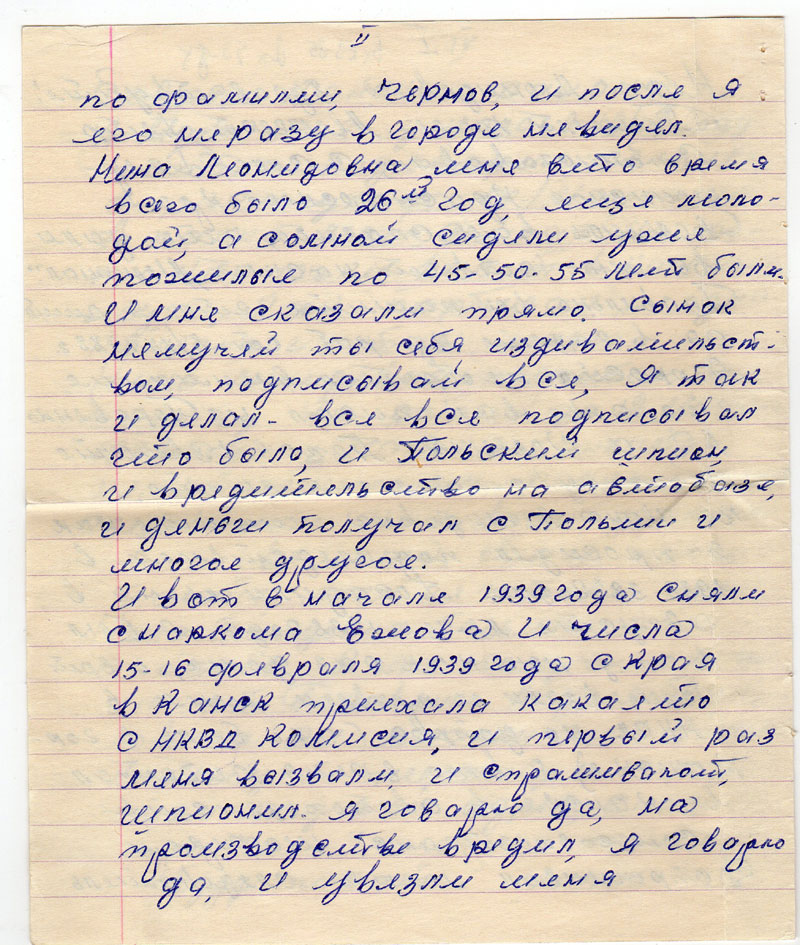 II
по фамилии, Чернов, и после я
его неразу в городе невидел.
Нина Леонидовна мне вето время
всего было 26 год, еще моло-
дой, а сомной сидели уже
пожилые по 45-50-55 лет были.
И мне сказали прямо. Сынок
немучей ты себя издивательст-
вом, подписывай все, я так
и делал - все все подписывал
что было, и Польский шпион,
и вредительство на автобазе,
и деньги получал с Польши и
многое другое.
И вот в начале 1939 года сняли
с наркома Ежова и числа
15-16 февраля 1939 года с края
в Канск приехала какаято
с НКВД комисия, и первый раз
меня вызвали, и спрашивают,
шпионил. я говарю да, на
производстве вредил, я говарю
да, и увезли меня